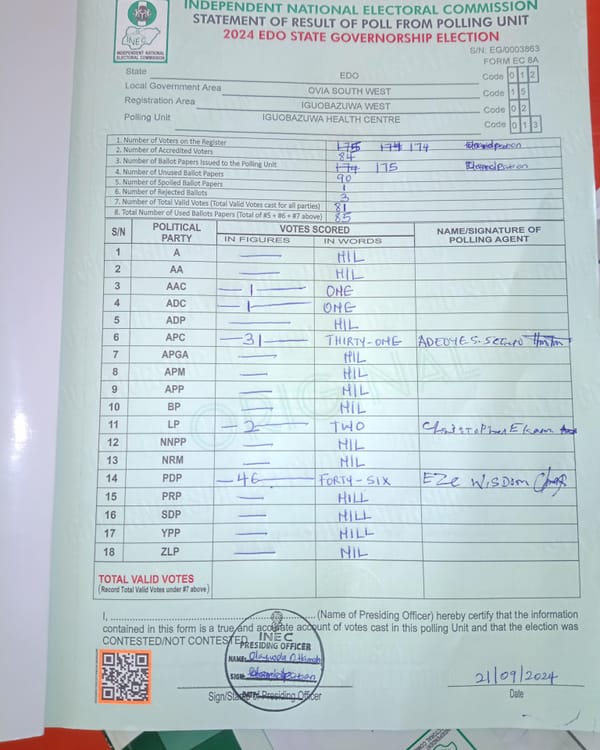 INDEPENDENT NATIONAL ELECTORAL COMMISSION
STATEMENT OF RESULT OF POLL FROM POLLING UNIT
2024 EDO STATE GOVERNORSHIP ELECTION
INEC
INDEPENDENT NATIONAL ELECTORAL COMMISSION
S/N: EG/0003863
FORM EC 8A
State EDO Code 0 1 2
Local Government Area OVIA SOUTH WEST Code 1 5
Registration Area IGUOBAZUWA WEST Code 0 2
Polling Unit IGUOBAZUWA HEALTH CENTRE Code 0 1 3
1. Number of Voters on the Register 175 174 174
2. Number of Accredited Voters 84
3. Number of Ballot Papers Issued to the Polling Unit 174 175
4. Number of Unused Ballot Papers 90
5. Number of Spoiled Ballot Papers 1
6. Number of Rejected Ballots 3
7. Number of Total Valid Votes (Total Valid Votes cast for all parties) 81
8. Total Number of Used Ballots Papers (Total of #5 + #6 + #7 above) 85
S/N POLITICAL PARTY VOTES SCORED NAME/SIGNATURE OF POLLING AGENT
IN FIGURES IN WORDS
1 A — NIL
2 AA — NIL
3 AAC — 1 — ONE
4 ADC — 1 — ONE
5 ADP — NIL
6 APC — 31 — THIRTY-ONE ADEOYE S. SEGUN
7 APGA — NIL
8 APM — NIL
9 APP — NIL
10 BP — NIL
11 LP — 2 — TWO Christopher Ekam
12 NNPP — NIL
13 NRM — NIL
14 PDP — 46 — FORTY-SIX EZE WISDOM
15 PRP — HILL
16 SDP — HILL
17 YPP — HILL
18 ZLP — NIL
ORIGINAL
TOTAL VALID VOTES
(Record Total Valid Votes under #7 above)
I, .......... (Name of Presiding Officer) hereby certify that the information
contained in this form is a true and accurate account of votes cast in this polling Unit and that the election was
CONTESTED/NOT CONTESTED
INEC
PRESIDING OFFICER
NAME:
SIGN:
DATE:
Sign/Stamp of Presiding Officer
21/09/2024
Date